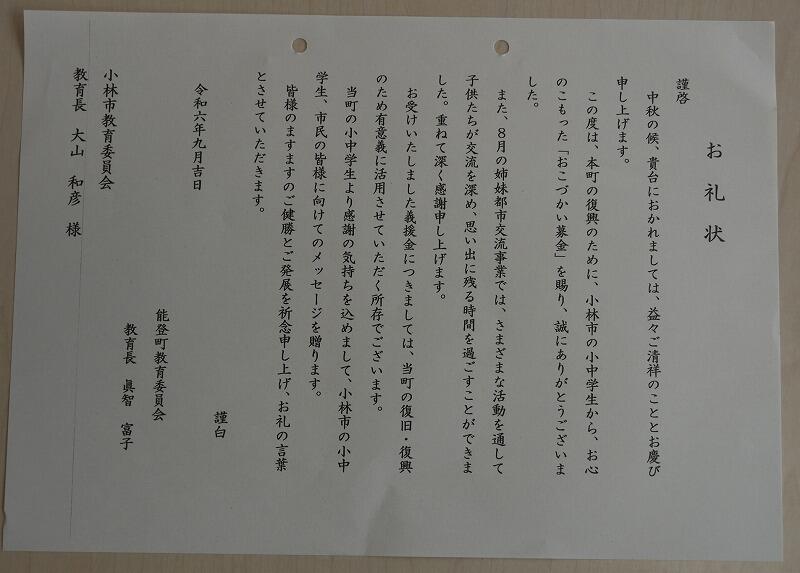 お礼状
謹啓
中秋の候、貴台におかれましては、益々ご清祥のこととお慶び
申し上げます。
この度は、本町の復興のために、小林市の小中学生から、お心
のこもった「おこづかい募金」を賜り、誠にありがとうございま
した。
また、８月の姉妹都市交流事業では、さまざまな活動を通して
子供たちが交流を深め、思い出に残る時間を過ごすことができま
した。重ねて深く感謝申し上げます。
お受けいたしました義援金につきましては、当町の復旧・復興
のため有意義に活用させていただく所存でございます。
当町の小中学生より感謝の気持ちを込めまして、小林市の小中
学生、市民の皆様に向けてのメッセージを贈ります。
皆様のますますのご健勝とご発展を祈念申し上げ、お礼の言葉
とさせていただきます。
謹白
令和六年九月吉日
能登町教育委員会
教育長　眞智　富子
小林市教育委員会
教育長　大山　和彦　様